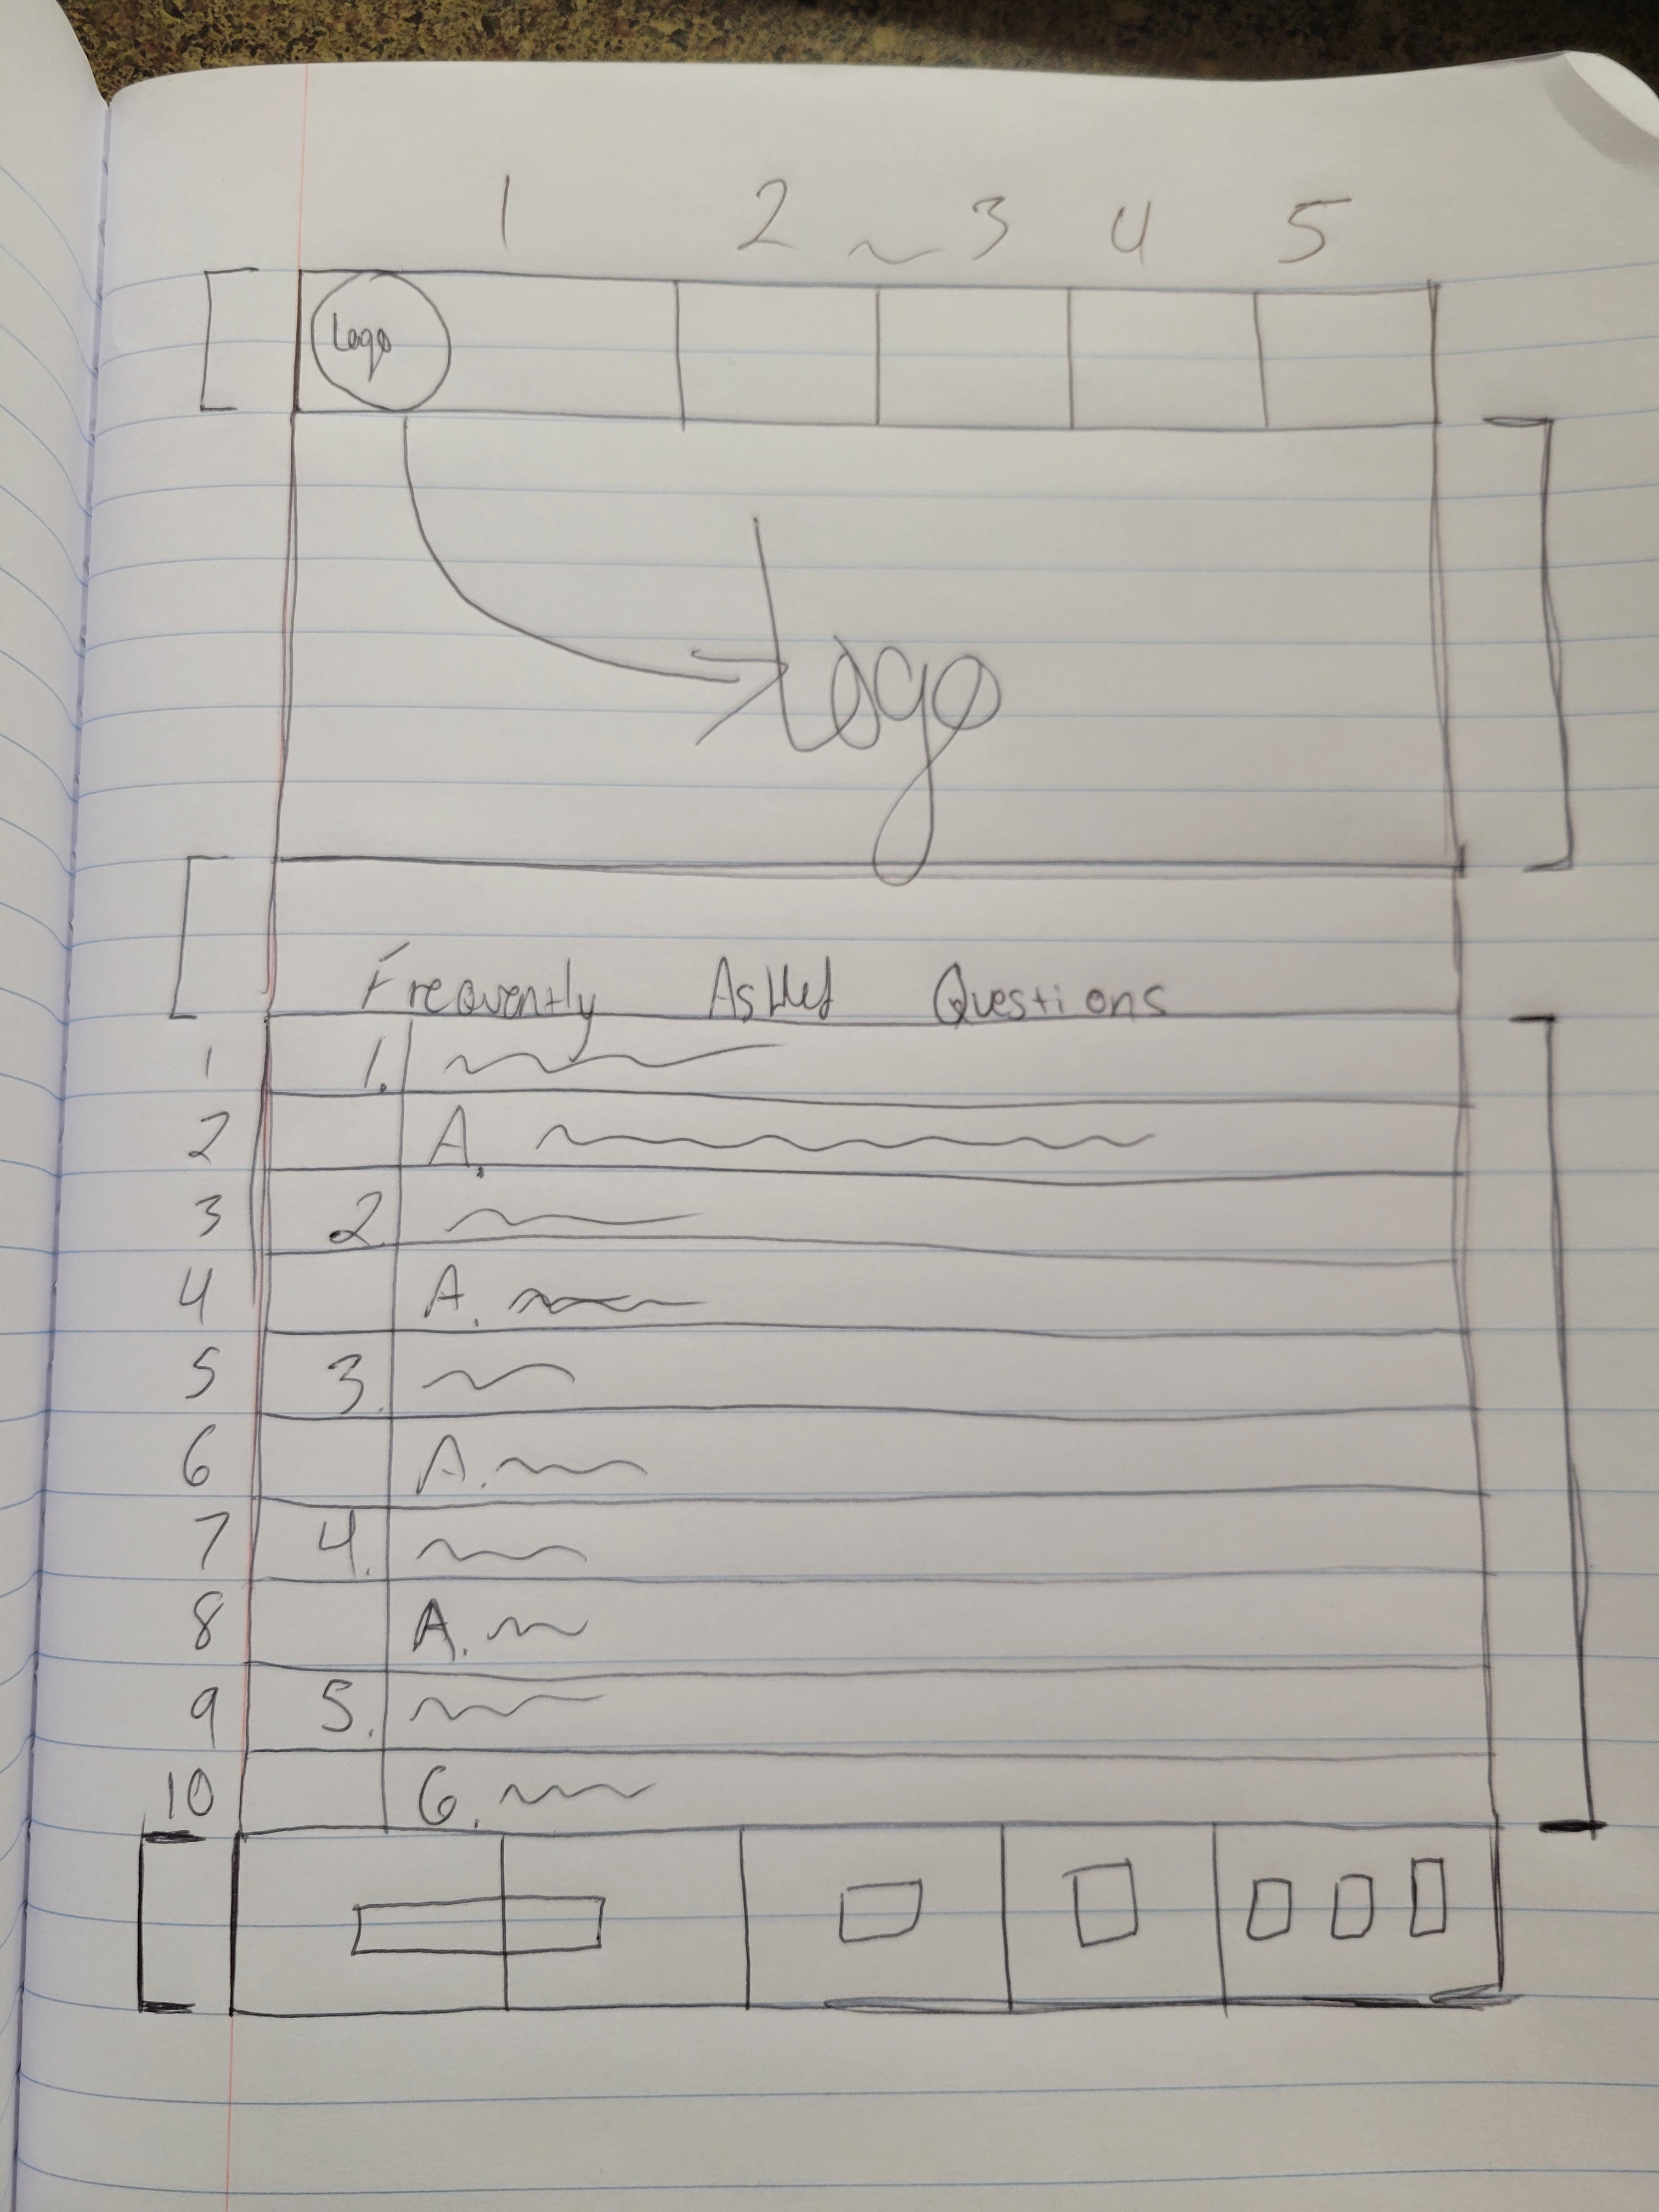 1 2 3 4 5
Logo
Logo
Frequently Asked Questions
1 1.
2 A.
3 2.
4 A.
5 3.
6 A.
7 4.
8 A.
9 5.
10 6.